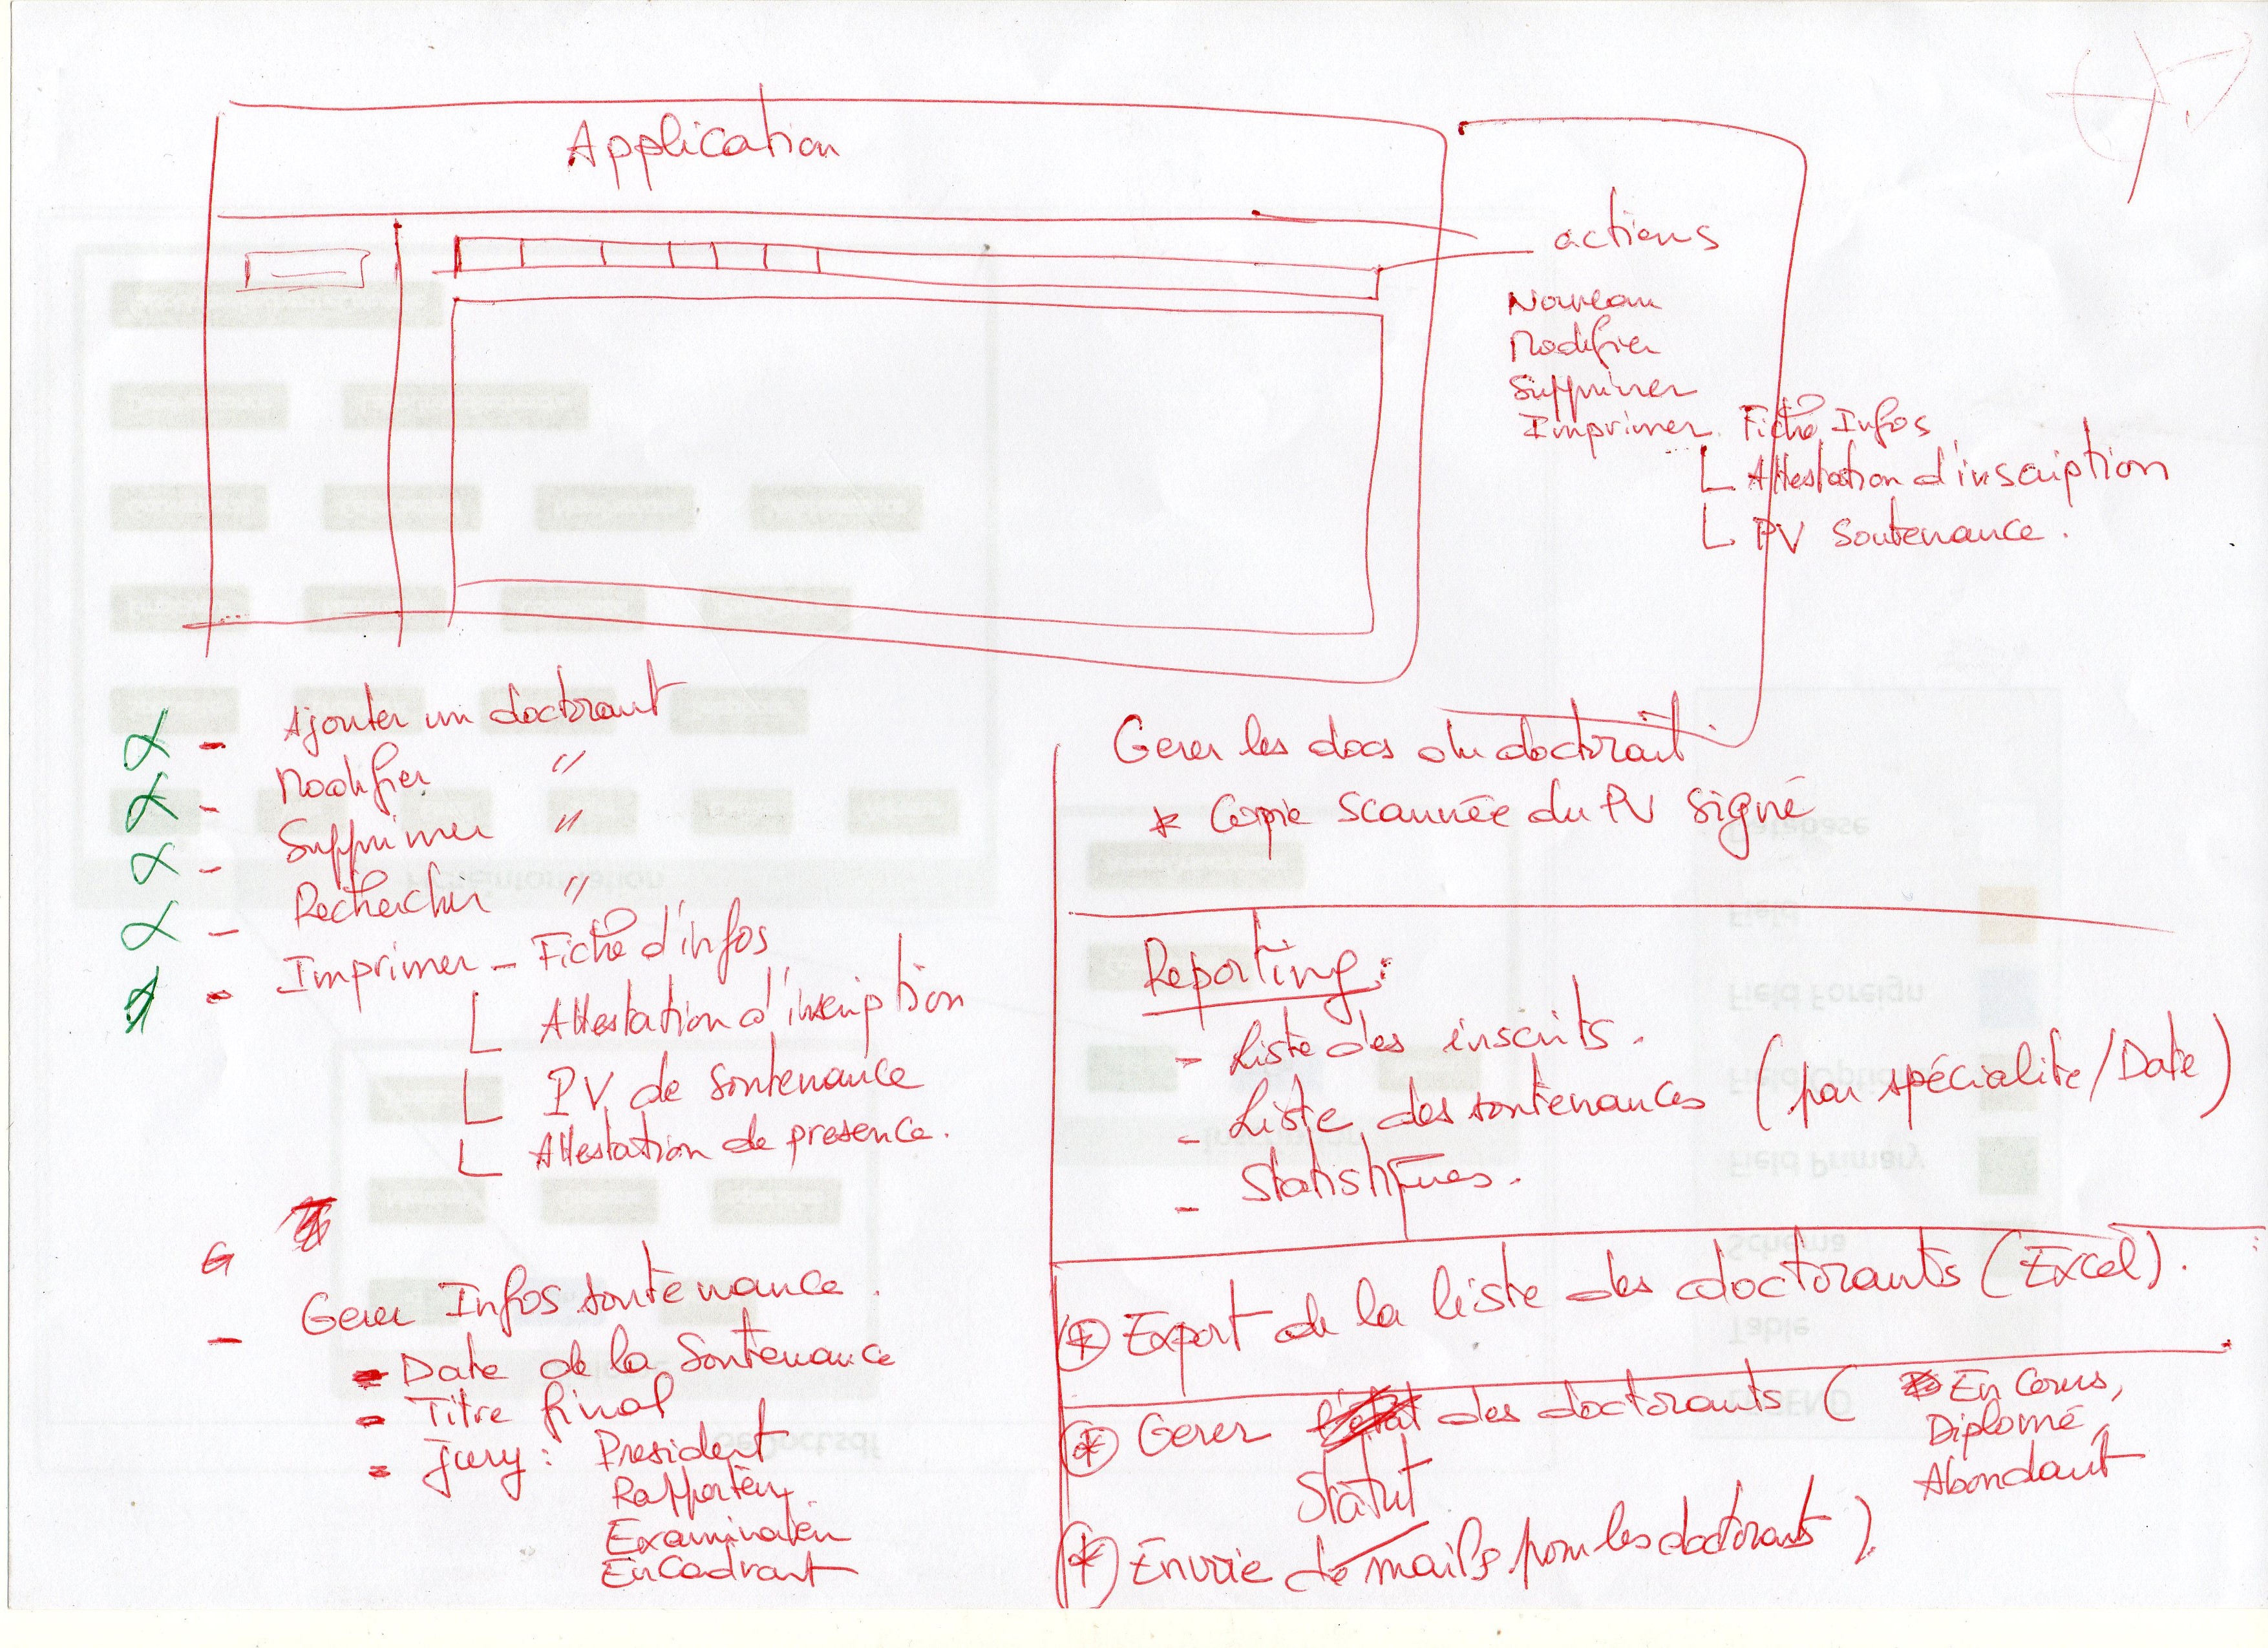 Application
actions
Nouveau
Modifier
Supprimer
Imprimer. Fiche Infos
Attestation d'inscription
PV Soutenance.
- Ajouter un doctorant
- Modifier "
- Supprimer "
- Rechercher "
- Imprimer - Fiche d'infos
Attestation d'inscription
PV de Soutenance
Attestation de presence.
- Gerer Infos soutenance.
- Date de la Soutenance
- Titre final
- Jury : President
Rapporteur
Examinateur
Encadrant
Gerer les docs du doctorant
* Copie Scannée du PV signé
Reporting:
- Liste des inscrits.
- Liste des soutenances (par spécialité/Date)
- Statistiques.
* Export de la liste des doctorants (Excel).
* Gerer l'état des doctorants ( En Cours,
Statut
Diplomé,
Abondant
* Envoie de mails pour les doctorants ).
Fiche information
Database
Field
Field Foreign
Field Option
Field Primary
Schema
Table
LEGEND